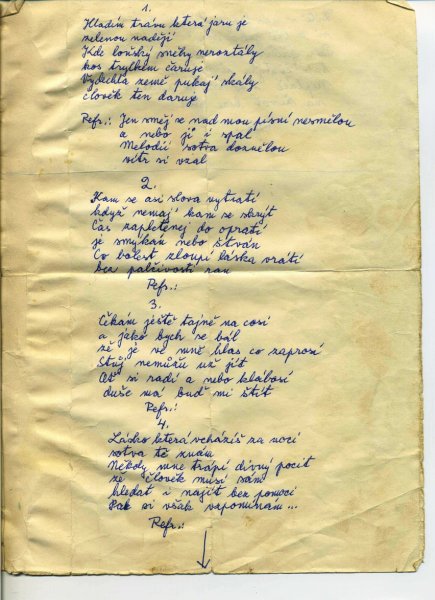 1.
Hladím trávu která jaru je
zelenou nadějí
Kde loňský sněhy neroztály
kos trylkem čaruje
Vydechla země pukaj' skály
člověk ten daruje
Refr.: Jen směj se nad mou písní nesmělou
a nebo ji i spal
Melodii sotva doznělou
vítr si vzal
2.
Kam se asi slova vytratí
když nemaj' kam se skrýt
Čas zapletenej do opratí
je smýkán nebo štván
Co bolest zloupí láska vrátí
bez palčivosti ran
Refr.:
3.
Čekám ještě tajně na cosi
a jako bych se bál
že je ve mně hlas co zaprosí
Stůj nemůžu už jít
Ať si radí a nebo klábosí
duše má buď mi štít
Refr.:
4.
Lásko která vcházíš za nocí
sotva tě znám
Někdy mne trápí divný pocit
že člověk musí sám
hledat i najít bez pomoci
Pak si však vzpomínám ...
Refr.: